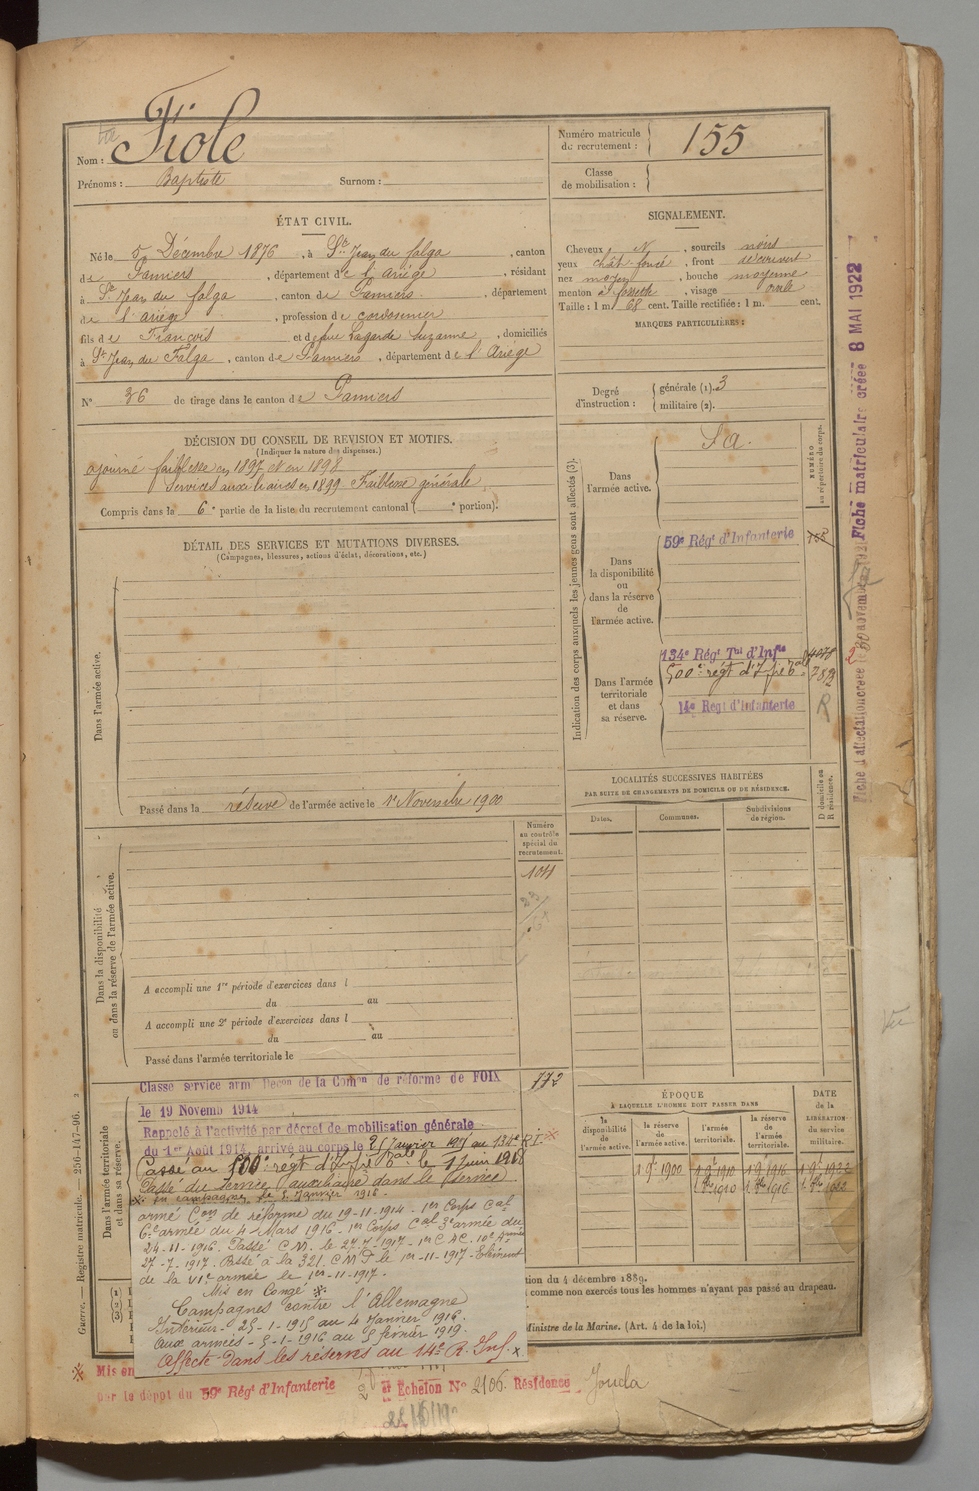 Fiole
Nom :
Prénoms : Baptiste Surnom :
Numéro matricule
du recrutement : 155
Classe
de mobilisation :
ÉTAT CIVIL.
Né le 5 Décembre 1876, à St Jean du falga, canton
de Pamiers, département de l'ariège, résidant
à St Jean du falga, canton de Pamiers, département
de l'ariège, profession de cordonnier
fils de François et de feue Lagarde Suzanne, domiciliés
à St Jean du Falga, canton de Pamiers, département de l'Ariège
N° 36 de tirage dans le canton de Pamiers
SIGNALEMENT.
Cheveux N, sourcils noirs
yeux chât. foncé, front découvert
nez moyen, bouche moyenne
menton à fossette, visage ovale
Taille : 1 m. 68 cent. Taille rectifiée : 1 m. cent.
MARQUES PARTICULIÈRES :
Degré
d'instruction :
générale (1). 3
militaire (2).
DÉCISION DU CONSEIL DE REVISION ET MOTIFS.
(Indiquer la nature des dispenses.)
ajourné faiblesse en 1897 et en 1898
Services auxiliaires en 1899. Faiblesse générale
Compris dans la 6e partie de la liste du recrutement cantonal ( e portion).
DÉTAIL DES SERVICES ET MUTATIONS DIVERSES.
(Campagnes, blessures, actions d'éclat, décorations, etc.)
Dans l'armée active.
Passé dans la réserve de l'armée active le 1er Novembre 1900
Indication des corps auxquels les jeunes gens sont affectés (3).
NUMÉRO
au répertoire du corps.
Dans
l'armée active.
S a.
Dans
la disponibilité
ou
dans la réserve
de
l'armée active.
59e Régt d'Infanterie
Dans l'armée
territoriale
et dans
sa réserve.
134e Régt Tal d'Infie
500e régt d'Infie Tale 782
14e Régt d'Infanterie R
LOCALITÉS SUCCESSIVES HABITÉES
PAR SUITE DE CHANGEMENTS DE DOMICILE OU DE RÉSIDENCE.
D domicile ou
R résidence.
Dates.
Communes.
Subdivisions
de région.
Dans la disponibilité
ou dans la réserve de l'armée active.
Numéro
au contrôle
spécial du
recrutement.
104
A accompli une 1re période d'exercices dans l
du au
A accompli une 2e période d'exercices dans l
du au
Passé dans l'armée territoriale le
772
Dans l'armée territoriale
et dans sa réserve.
Classé service armé Décon de la Comon de réforme de FOIX
le 19 Novemb 1914
Rappelé à l'activité par décret de mobilisation générale
du 1er Août 1914, arrivé au corps le 25 janvier 1915 au 134e R.I.
Passé au 500e régt d'Infie Tale le 1 Juin 1918
Passé du service auxiliaire dans le service
en campagne le 5 Janvier 1916.
armé Con de réforme du 19-11-1914 - 1er Corps Cal
6e armée du 4 Mars 1916 - 1er Corps Cal 3e armée du
24-11-1916. Passé C.M. le 27-7-1917 - 1er C.A.C. 10e Armée
27-7-1917. Passé à la 321. C M T le 1er-11-1917 - Elément
de la VIe armée le 1er-11-1917.
Mis en Congé
Campagnes contre l'Allemagne
Intérieur - 25-1-1915 au 4 Janvier 1916.
Aux armées - 5-1-1916 au 5 février 1919.
Affecté dans les réserves au 14e R. Inf.
ÉPOQUE
À LAQUELLE L'HOMME DOIT PASSER DANS
la
disponibilité
de
l'armée active.
la réserve
de
l'armée active.
l'armée
territoriale.
la réserve
de
l'armée
territoriale.
DATE
de la
LIBÉRATION
du service
militaire.
1 9bre 1900 1 9bre 1910 1 9bre 1916 1 9bre 1922
1 8bre 1910 1 8bre 1916 1 8bre 1922
tion du 4 décembre 1889.
comme non exercés tous les hommes n'ayant pas passé au drapeau.
Ministre de la Marine. (Art. 4 de la loi.)
Mis en
par le dépôt du 59e Régt d'Infanterie
er Echelon N° 2106. Résidence
Guerre. — Registre matricule. — 256-147-96.
Fiche matriculaire créée 8 MAI 1922
Fiche d'affectation créée le 30 novembre